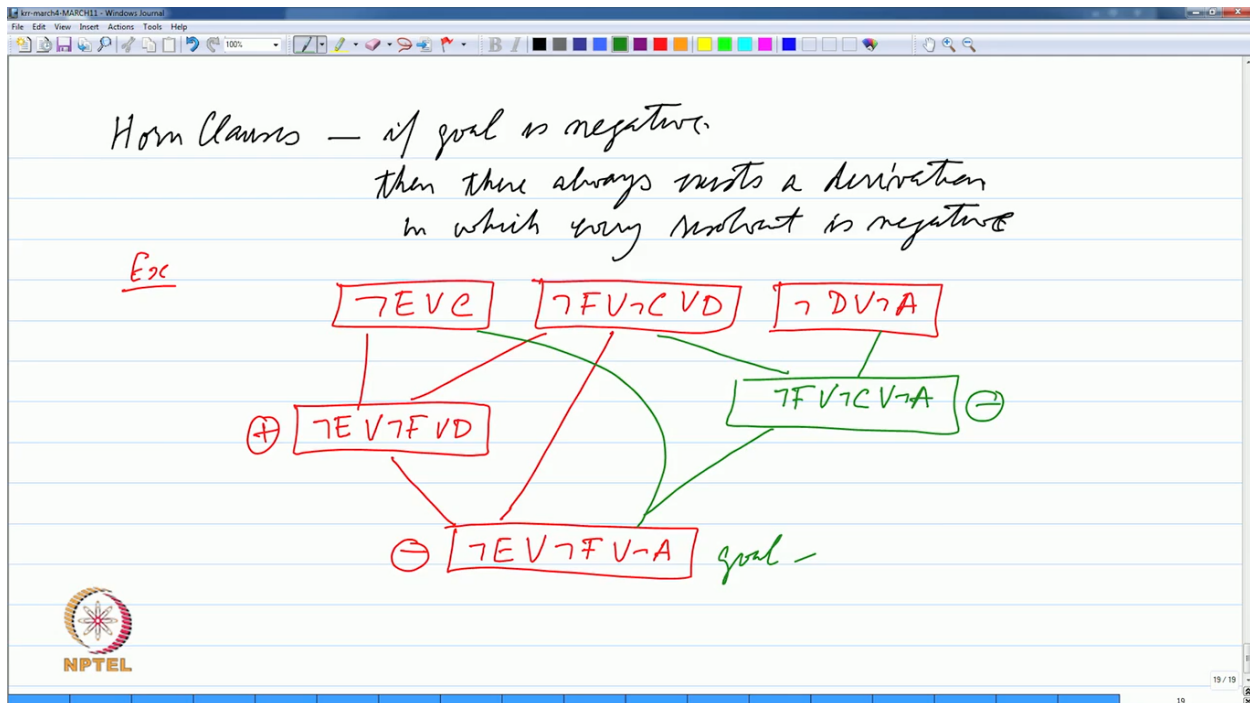 krr-march4-MARCH11 - Windows Journal
File Edit View Insert Actions Tools Help
100%
B I
Horn Clauses — if goal is negative.
then there always exists a derivation
in which every resolvent is negative
Ex
¬E V C
¬F V ¬C V D
¬D V ¬A
¬F V ¬C V ¬A
⊖
⊕
¬E V ¬F V D
⊖
¬E V ¬F V ¬A
goal –
NPTEL
19 / 19
19